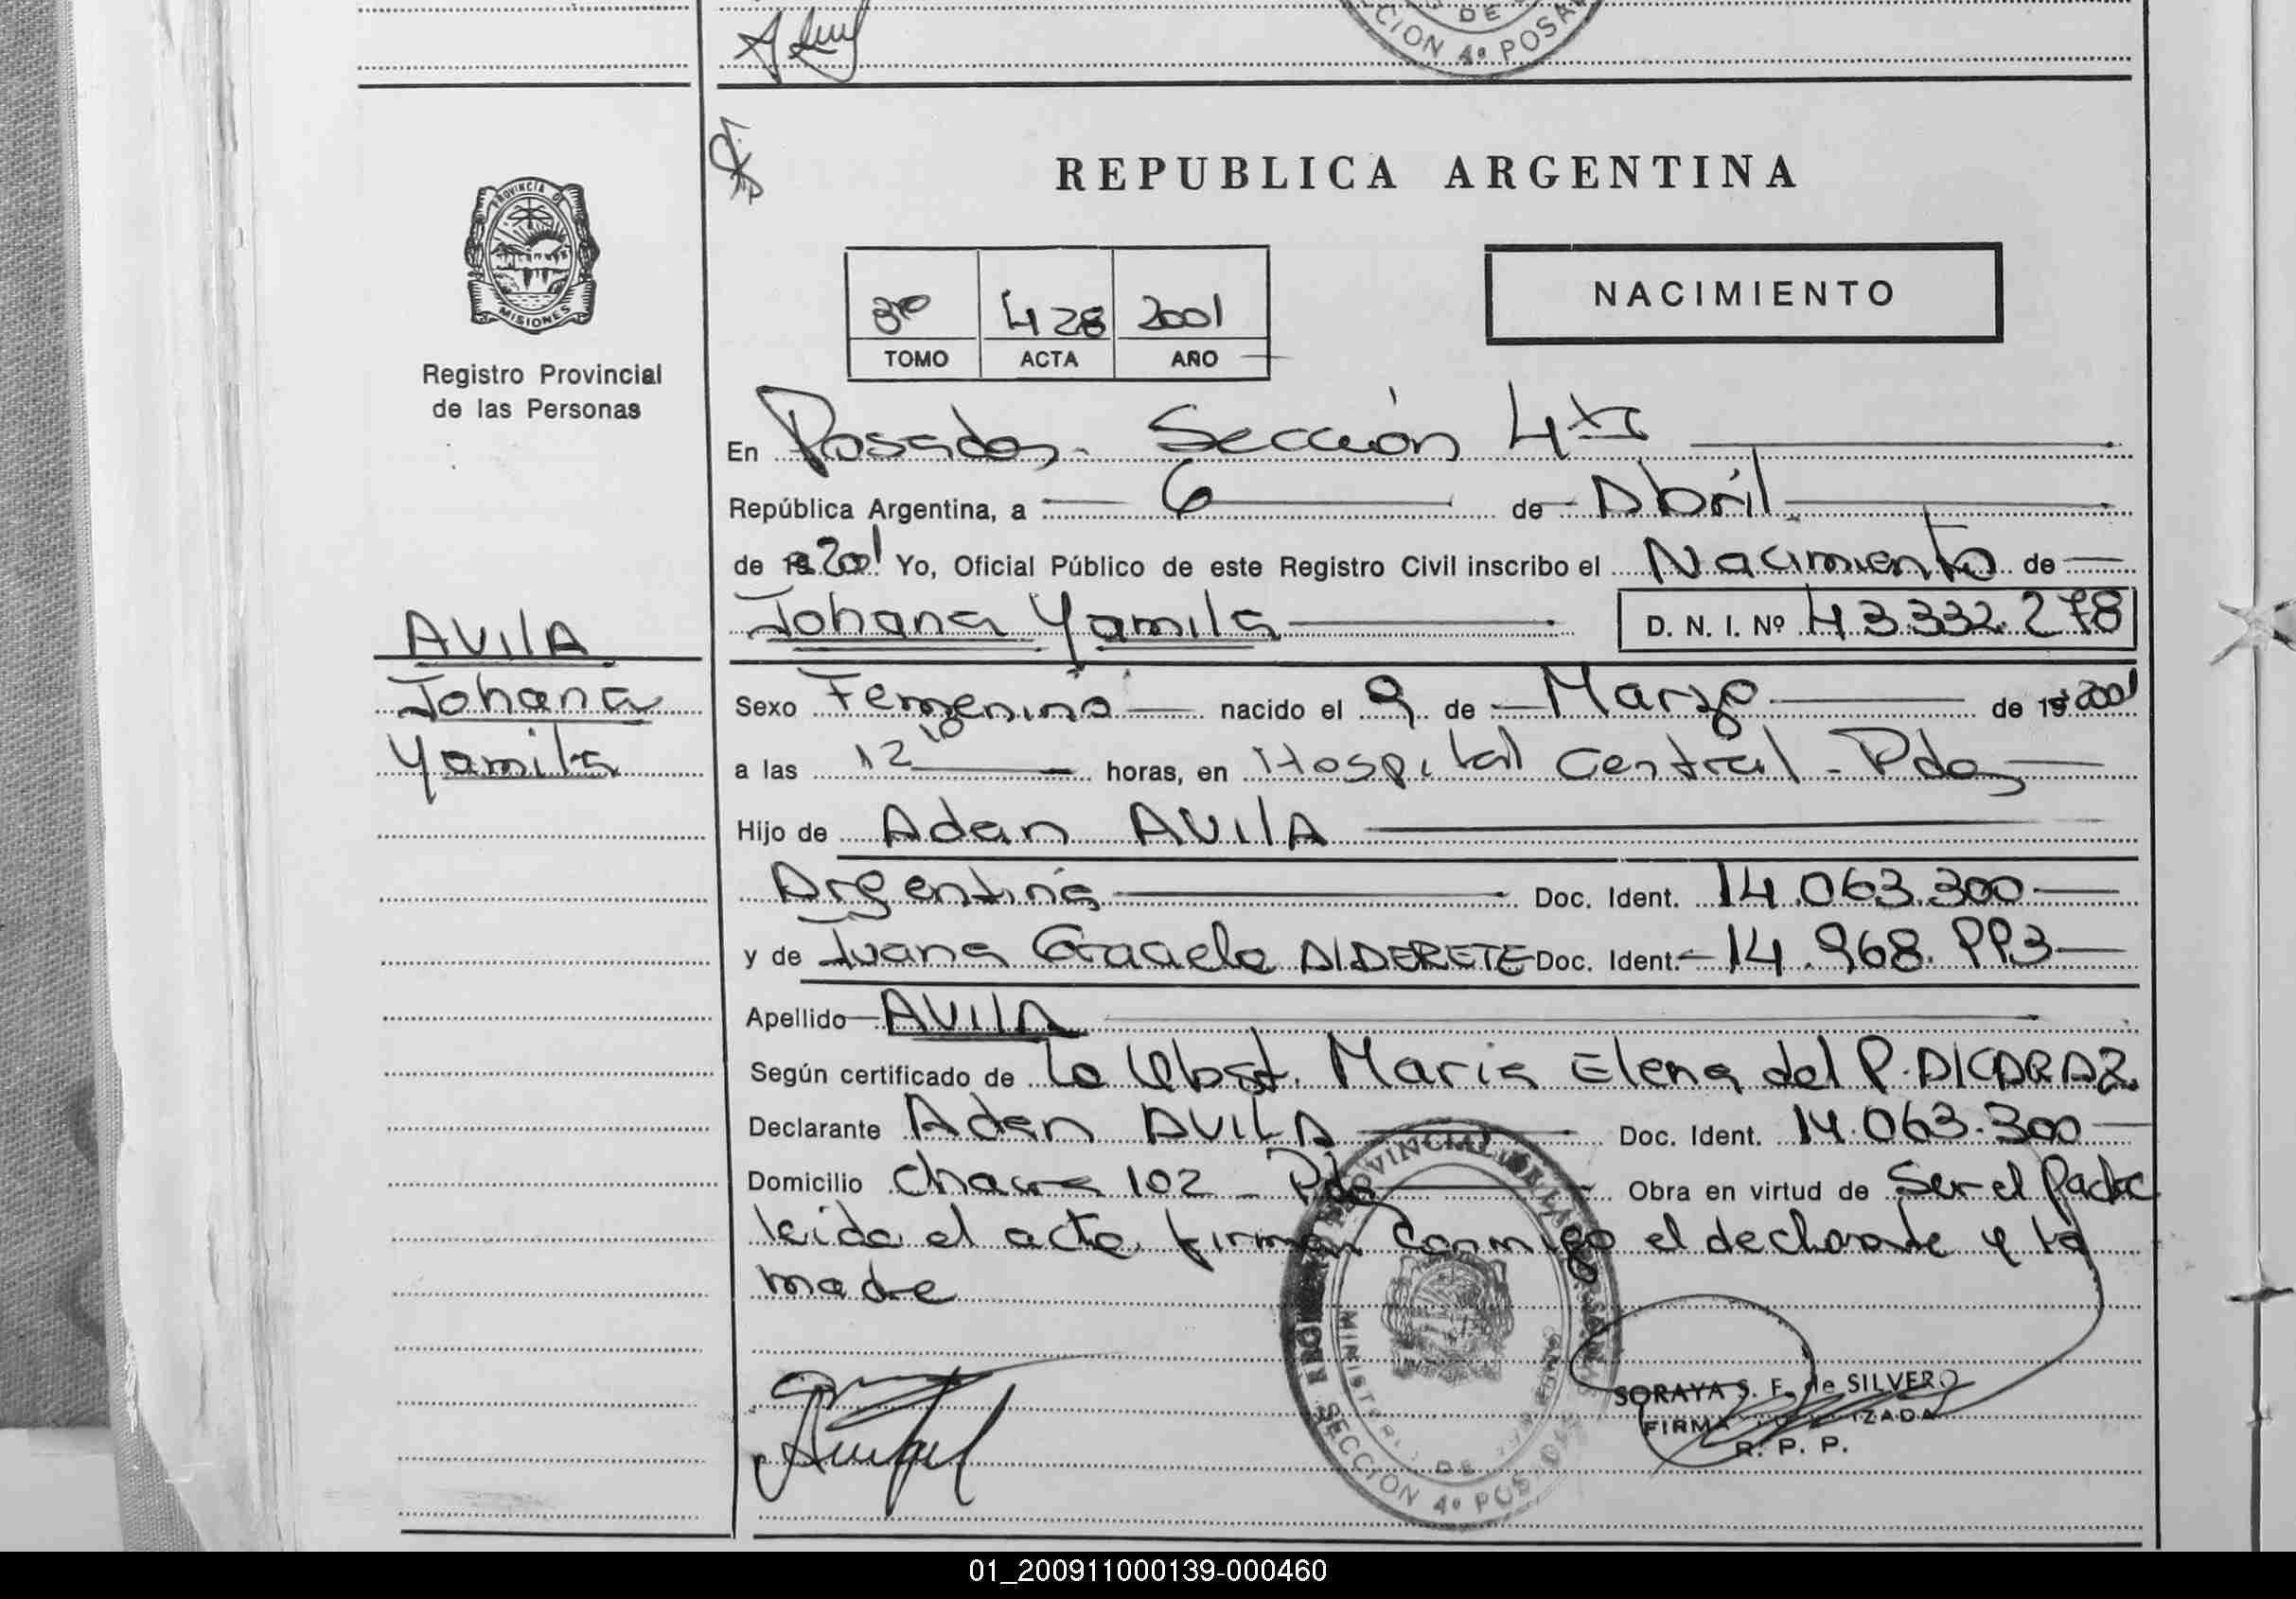 DE
CION 4º POSA
PROVINCIA DE
MISIONES
Registro Provincial
de las Personas
REPUBLICA ARGENTINA
NACIMIENTO
3ro 428 2001
TOMO ACTA AÑO
En Posadas. Sección 4ta
República Argentina, a 6 de Abril
de 2001 Yo, Oficial Público de este Registro Civil inscribo el Nacimiento de
Johana Yamila D. N. I. Nº 43.332.278
AVILA
Johana
Yamila
Sexo Femenino nacido el 9 de Marzo de 2001
a las 12 10 horas, en Hospital Central - Pdas
Hijo de Adan AVILA
Argentina Doc. Ident. 14.063.300
y de Juana Graciela ALDERETE Doc. Ident. 14.968.993
Apellido AVILA
Según certificado de La Obst. Maria Elena del P. ALCARAZ
Declarante Adan AVILA Doc. Ident. 14.063.300
Domicilio Chacra 102 - Pdas Obra en virtud de Ser el Padre
leida el acta firman conmigo el declarante y la
madre
MINISTERIO DE
SECCION 4º POSADAS
SORAYA S. F. de SILVERO
FIRMA AUTORIZADA
R. P. P.
01_200911000139-000460